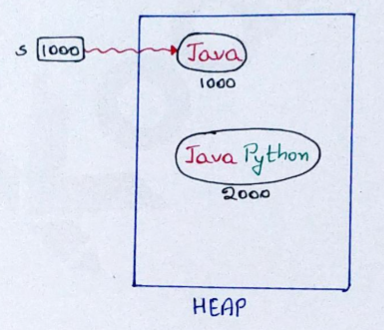 s 1000 Java
1000
Java Python
2000
HEAP